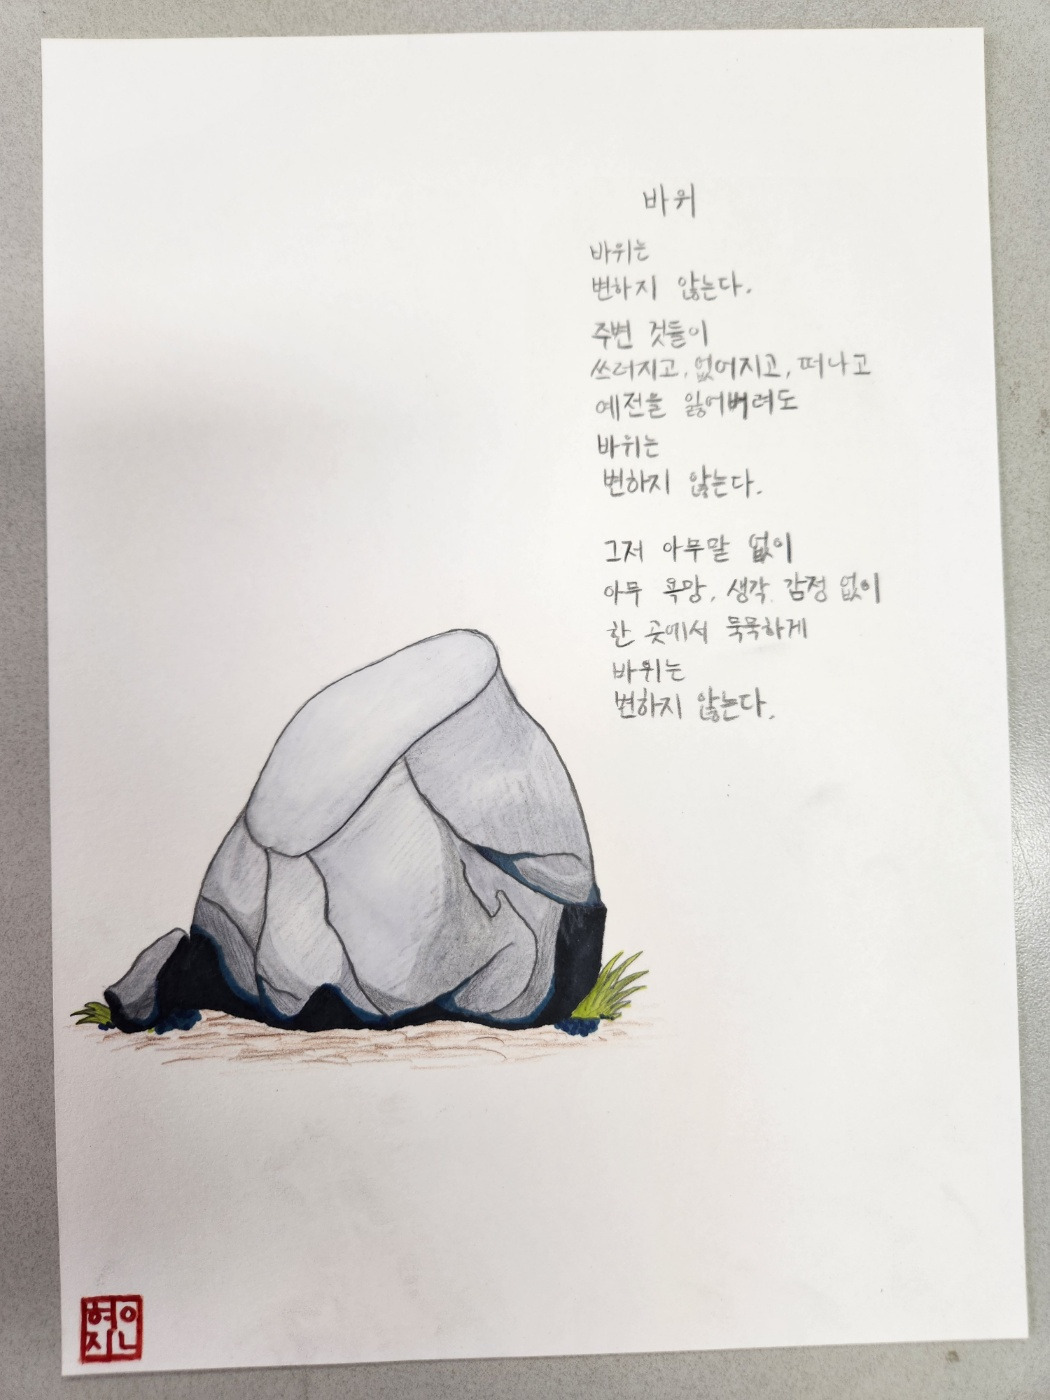 바위
바위는
변하지 않는다.
주변 것들이
쓰러지고, 없어지고, 떠나고
예전을 잃어버려도
바위는
변하지 않는다.
그저 아무말 없이
아무 욕망, 생각, 감정 없이
한 곳에서 묵묵하게
바위는
변하지 않는다.